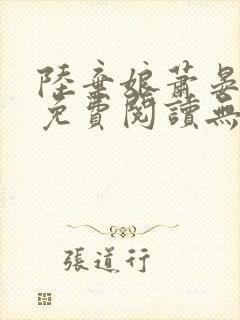 陸棄娘蕭晏
免費閱讀無
張道行